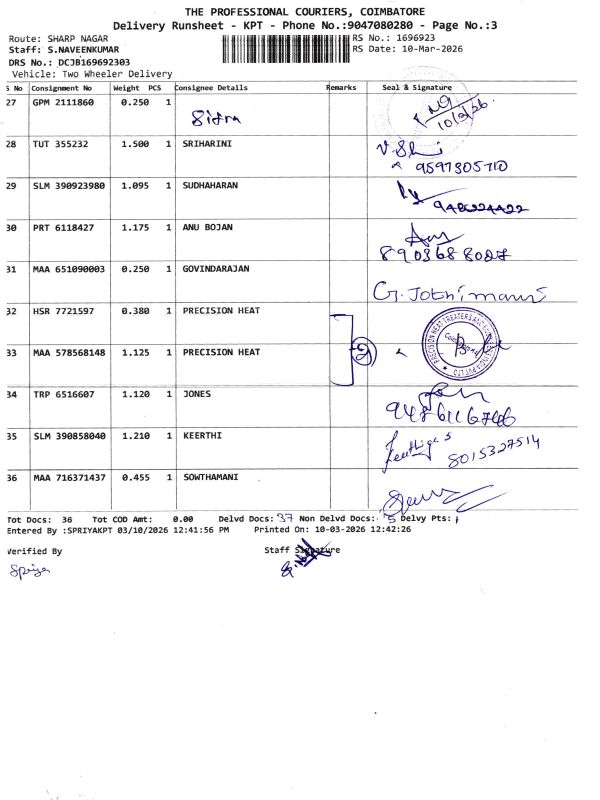 THE PROFESSIONAL COURIERS, COIMBATORE
Delivery Runsheet - KPT - Phone No.:9047080280 - Page No.:3
Route: SHARP NAGAR RS No.: 1696923
Staff: S.NAVEENKUMAR RS Date: 10-Mar-2026
DRS No.: DCJB169692303
Vehicle: Two Wheeler Delivery
S No Consignment No Weight PCS Consignee Details Remarks Seal & Signature
27 GPM 2111860 0.250 1
10/3/26
28 TUT 355232 1.500 1 SRIHARINI
9597305710
29 SLM 390923980 1.095 1 SUDHAHARAN
30 PRT 6118427 1.175 1 ANU BOJAN
8903688087
31 MAA 651090003 0.250 1 GOVINDARAJAN
32 HSR 7721597 0.380 1 PRECISION HEAT
33 MAA 578568148 1.125 1 PRECISION HEAT
2
34 TRP 6516607 1.120 1 JONES
35 SLM 390858040 1.210 1 KEERTHI
8015327514
36 MAA 716371437 0.455 1 SOWTHAMANI
Tot Docs: 36 Tot COD Amt: 0.00 Delvd Docs: 37 Non Delvd Docs: 5 Delvy Pts:
Entered By :SPRIYAKPT 03/10/2026 12:41:56 PM Printed On: 10-03-2026 12:42:26
Verified By Staff Signature
Spriya